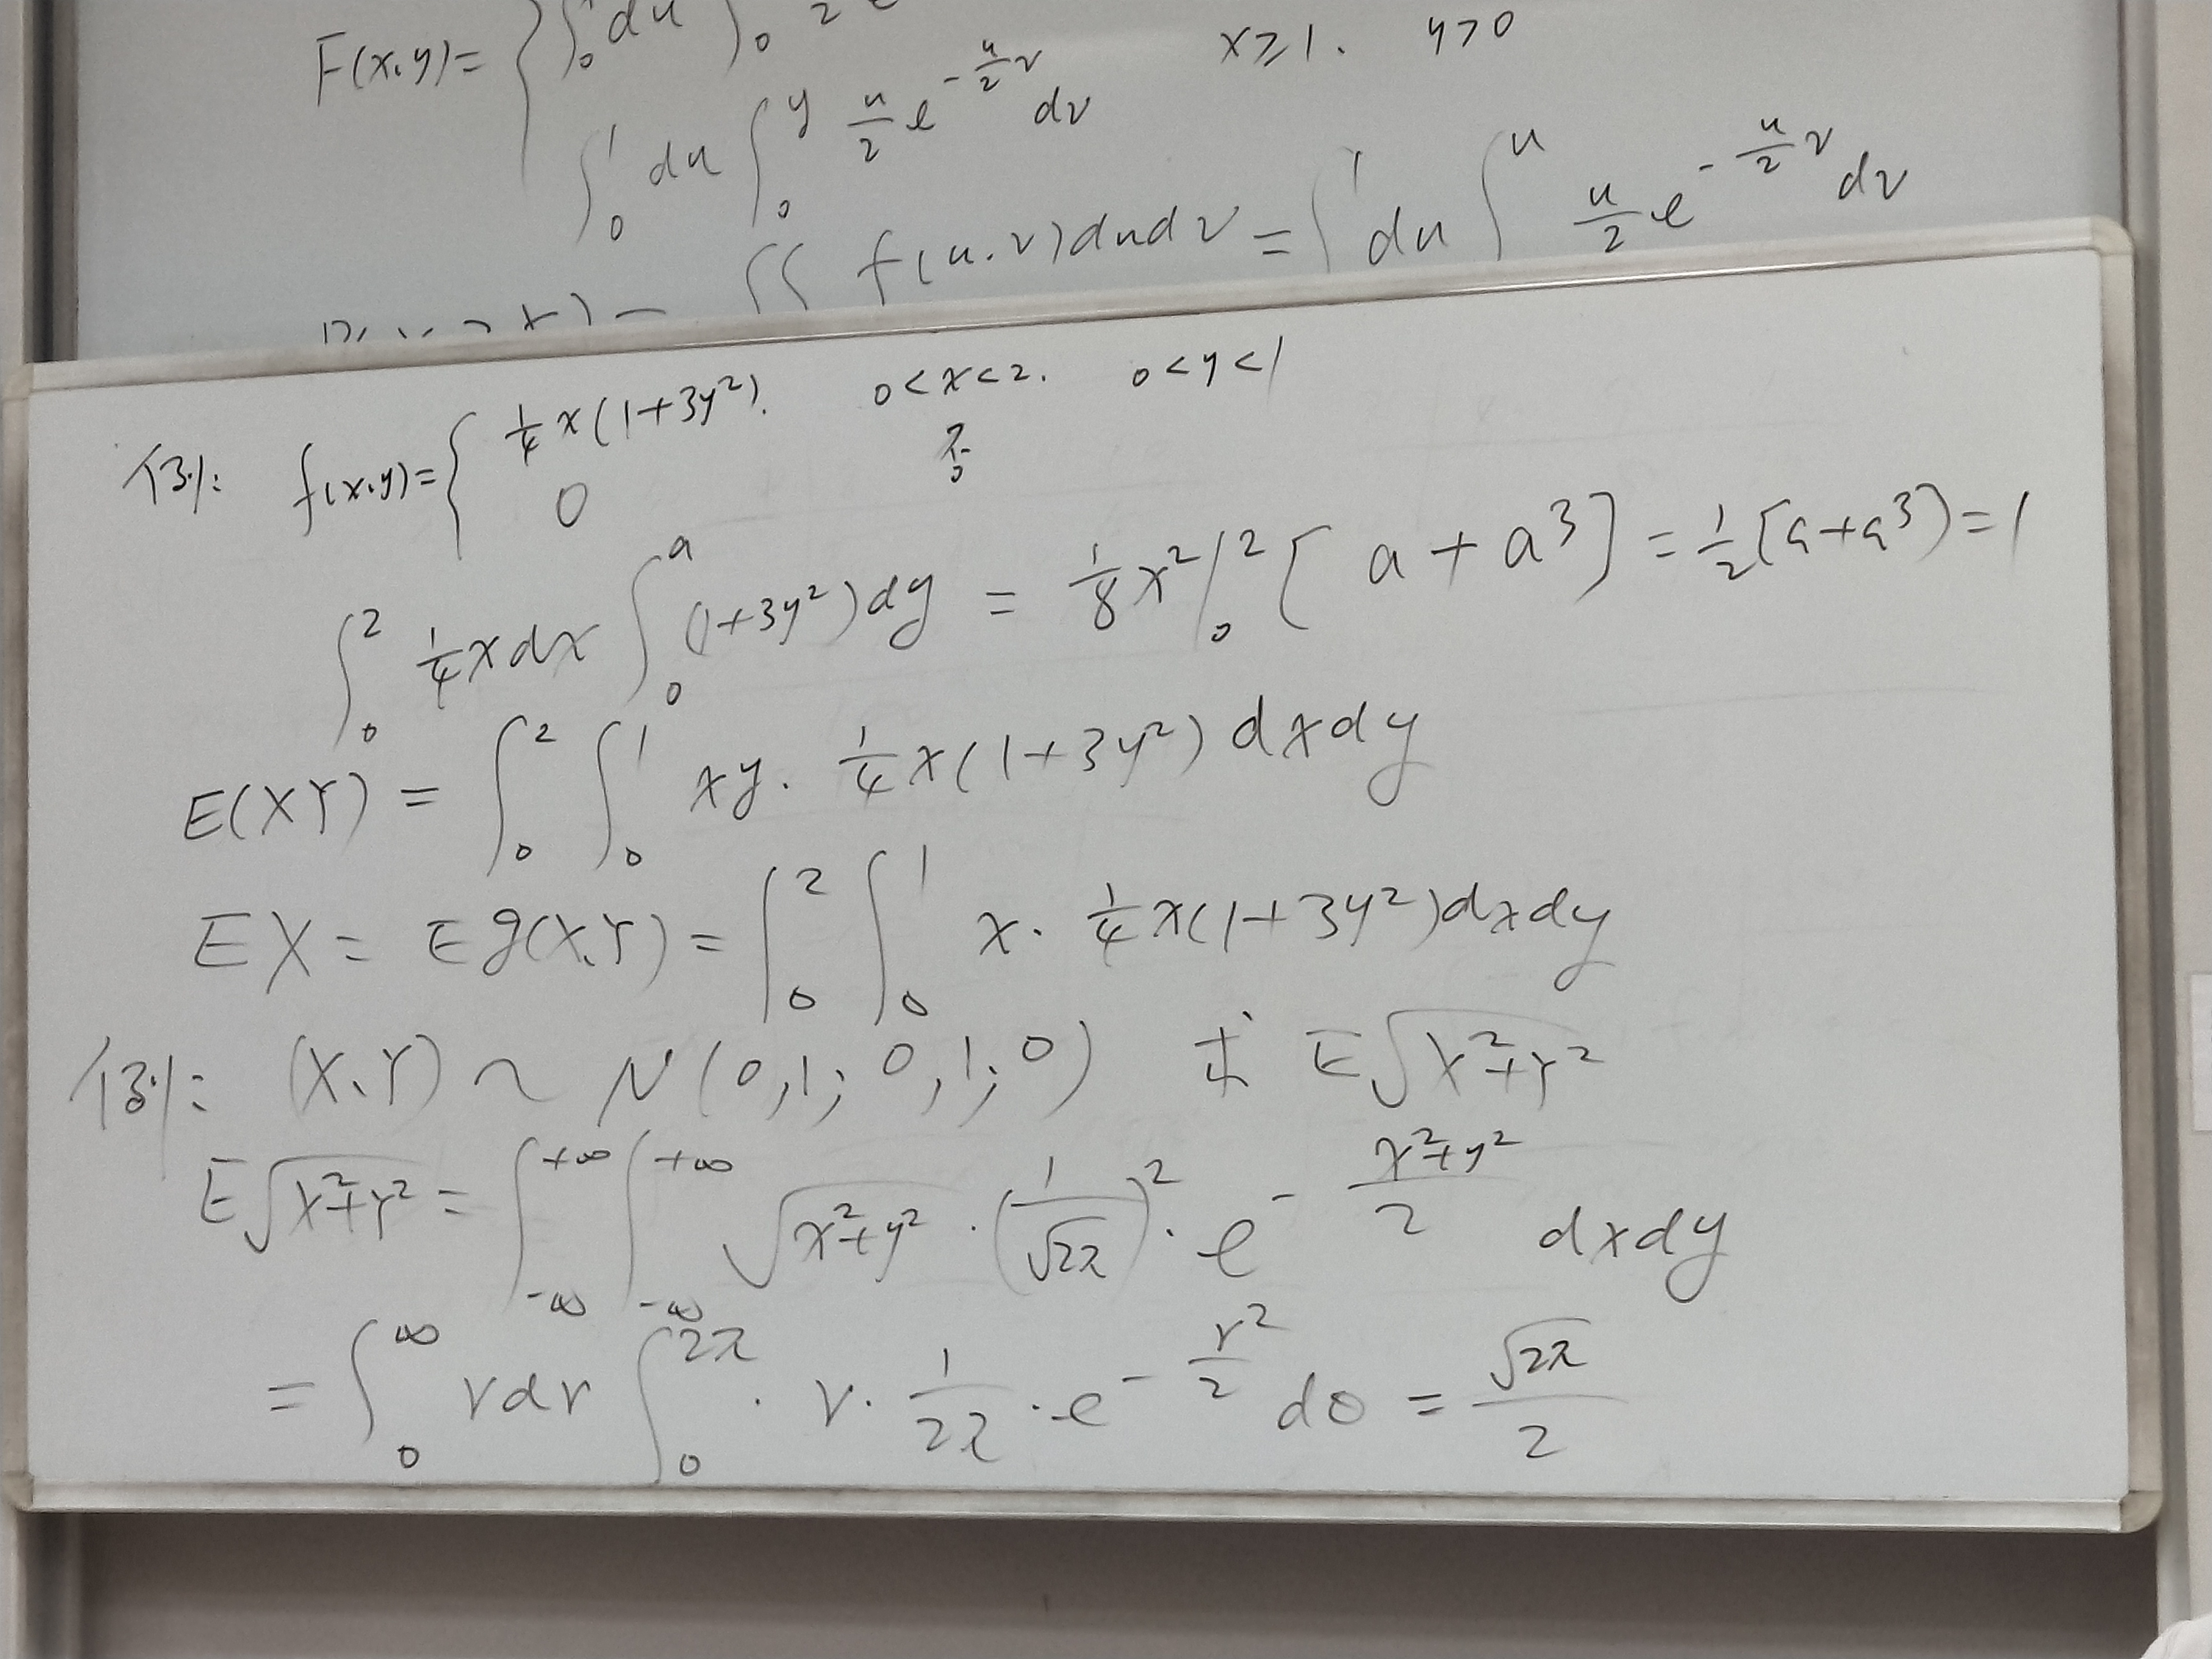 F(x,y)= { ∫₀¹ du ∫₀ 2 e
∫₀¹ du ∫₀^y u/2 e^(-u/2 v) dv x≥1. y>0
∫∫ f(u,v)dudv = ∫¹ du ∫^u u/2 e^(-u/2 v) dv
例: f(x,y)= { 1/4 x(1+3y²). 0<x<2. 0<y<1
0 不
∫₀² 1/4 x dx ∫₀^a (1+3y²)dy = 1/8 x² |₀² [a+a³] = 1/2 [a+a³) = 1
E(XY) = ∫₀² ∫₀¹ xy · 1/4 x(1+3y²) dxdy
EX = Eg(X,Y) = ∫₀² ∫₀¹ x · 1/4 x(1+3y²)dxdy
例: (X,Y) ~ N(0,1; 0,1; 0) 求 E√(X²+Y²)
E√(X²+Y²) = ∫_(-∞)^(+∞) ∫_(-∞)^(+∞) √(x²+y²) · (1/√(2π))² · e^(-(x²+y²)/2) dxdy
= ∫₀^∞ rdr ∫₀^(2π) · r · 1/(2π) · e^(-r²/2) dθ = √(2π)/2